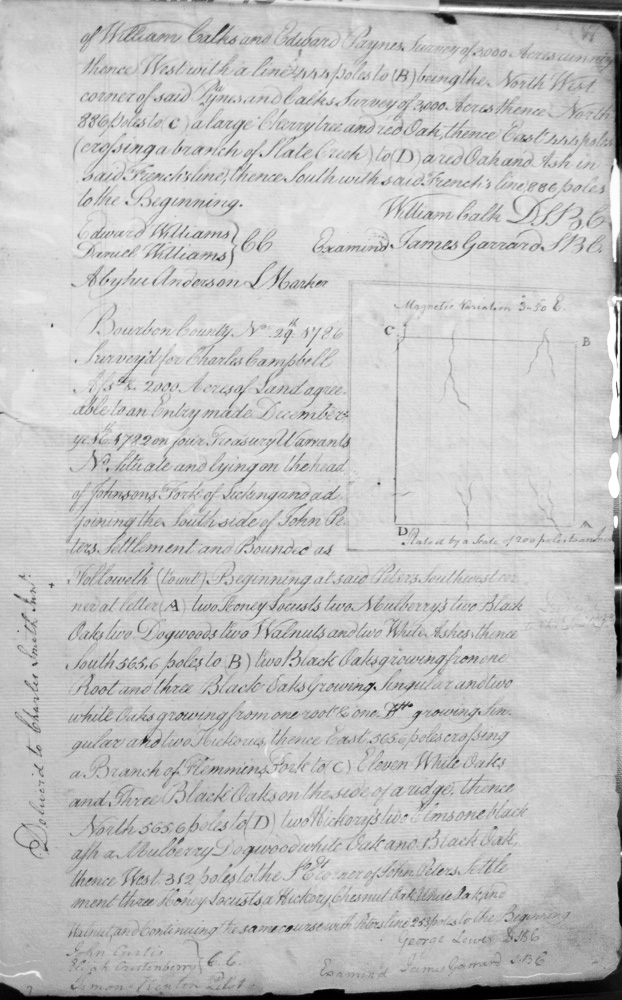 of William Calks and Edward Paynes Survey of 3000 Acres running
thence West with a line 444 poles to (B) being the North West
corner of said Pynes and Calks Survey of 3000 Acres thence North
886 poles to C) a large Cherry tree and red Oak, thence East 444 poles
(crossing a branch of Slate Creek) to (D) a red Oak and Ash in
said French's line, thence South with said French's line 886 poles
to the Beginning.
William Calk DSBC
Edward Williams
Daniel Williams } CC
Examind James Garrard SBC.
Abyhu Anderson L Marker
Magnetic Variation 3-50 E.
C
B
D
A
Plated by a Scale of 200 poles to an Inch
Bourbon County Nov. 29th 1786
Survey'd for Charles Campbell
Assee. 2000 Acres of Land agree-
able to an Entry made December
ye. 16 1782 on four Treasury Warrants
No. situate and lying on the head
of Johnsons Fork of Licking and ad-
joining the South side of John Pe-
ters Settlement and Bounded as
Followeth (towit) Beginning at said Peters Southwest cor-
ner at letter (A) two Honey Locusts two Mulberrys two Black
Oaks two Dogwoods two Walnuts and two White Ashes thence
South 565,6 poles to B) two Black Oaks growing from one
Root and three Black Oaks Growing Singular and two
white Oaks growing from one root & one Wte growing Sin-
gular and two Hickories, thence East 565,6 poles crossing
a Branch of Flemmins Fork to C) Eleven White Oaks
and Three Black Oaks on the side of a ridge, thence
North 565,6 poles to (D) two Hickory's two Elms one black
ash a Mulberry Dogwood white Oak and Black Oak,
thence West 312 poles to the SEt corner of John Peters Settle-
ment three Honey Locusts a Hickory Chesnut Oak, White Oak, and
Walnut, and Continuing the same course with Peters line 253 poles to the Beginning
George Lewis DSBC
John Curtis
Elijah } C.C.
Simon Kenton Pilot
Examin'd James Garrard SBC
Deliver'd to Charles Smith Junr.